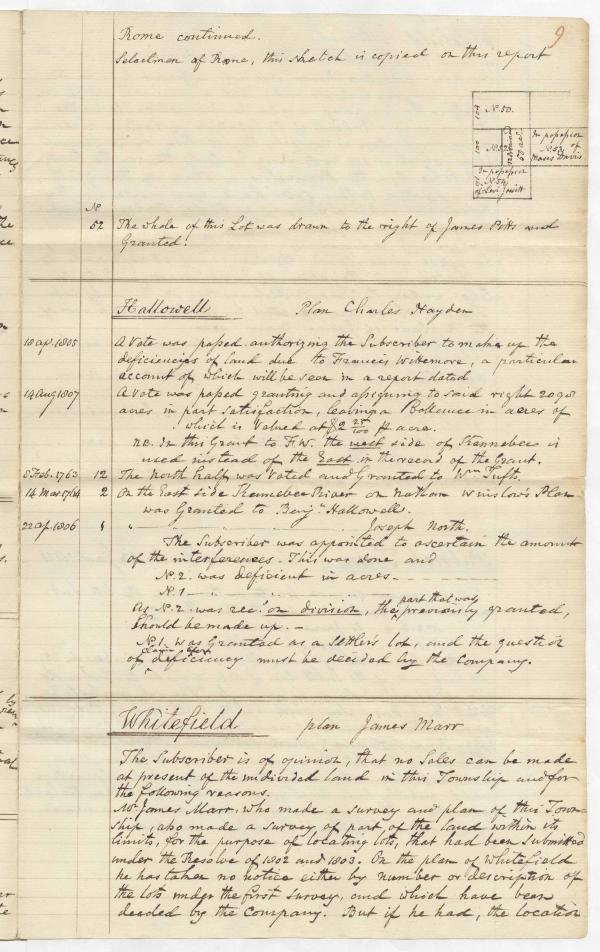 9
Rome continued.
Selectmen of Rome, this sketch is copied on this report
100 No 50.
100 No 52
50 acr.
In possession of No 53 Moses Davis
In possession No 54 of Levi Jewitt
No
52 The whole of this Lot was drawn to the right of James Pitts and
Granted.
Hallowell Plan Charles Hayden
18 ap. 1805 A Vote was passed authorizing the Subscriber to make up the
deficiencies of land due to Francis Wittemore, a particular
account of which will be seen in a report dated
14 Aug 1807 A Vote was passed granting and assigning to said right 2098
acres in part satisfaction, leaving a Ballance in acres of
which is valued at $2 25/100 ⅌ acre.
NB. In this Grant to F.W. the west side of Kennebec is
used instead of the East in the record of the Grant.
8 Feb. 1763 12 The North half was Voted and Granted to Wm Tufts.
14 Mar 1764 2 On the East side Kennebec River on Nathan Winslow's Plan
was Granted to Benjn Hallowell.
22 ap. 1806 " " " " " Joseph North.
The Subscriber was appointed to ascertain the amount
of the interferences. This was done and
No. 2. was deficient in acres
No. 1
As No. 2. was rec'd on division, the part that was previously granted,
should be made up. -
No 1. was Granted as a Settler's lot, and the question
of Claim before deficiency must be decided by the Company.
Whitefield plan James Marr
The Subscriber is of opinion, that no Sales can be made
at present of the undivided land in this Township and for
the following reasons.
Mr James Marr, who made a survey and plan of this Town-
ship, also made a survey of part of the land within its
limits, for the purpose of locating lots, that had been Submitted
under the Resolve of 1802 and 1803. On the plan of Whitefield
he has taken no notice either by number or description of
the lots under the first survey, and which have been
deeded by the Company. But if he had, the location